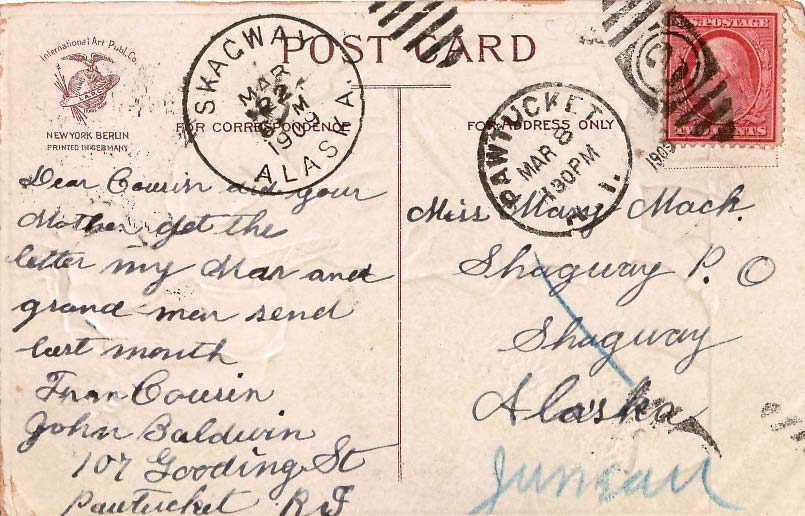 International Art Publ. Co.
NEW YORK BERLIN
PRINTED IN GERMANY
POST CARD
SKAGWAY
MAR
22
M
1909
ALASKA.
FOR CORRESPONDENCE
FOR ADDRESS ONLY
PAWTUCKET
MAR 8
130 PM
R. I.
1909
U.S. POSTAGE
2
TWO CENTS
Dear Cousin did your
Mother get the
letter my Mar and
grand mar send
last month
From Cousin
John Baldwin
107 Gooding St
Pautucket R I
Miss Mary Mack.
Shagway P. O
Shagway
Alaska
Juneau